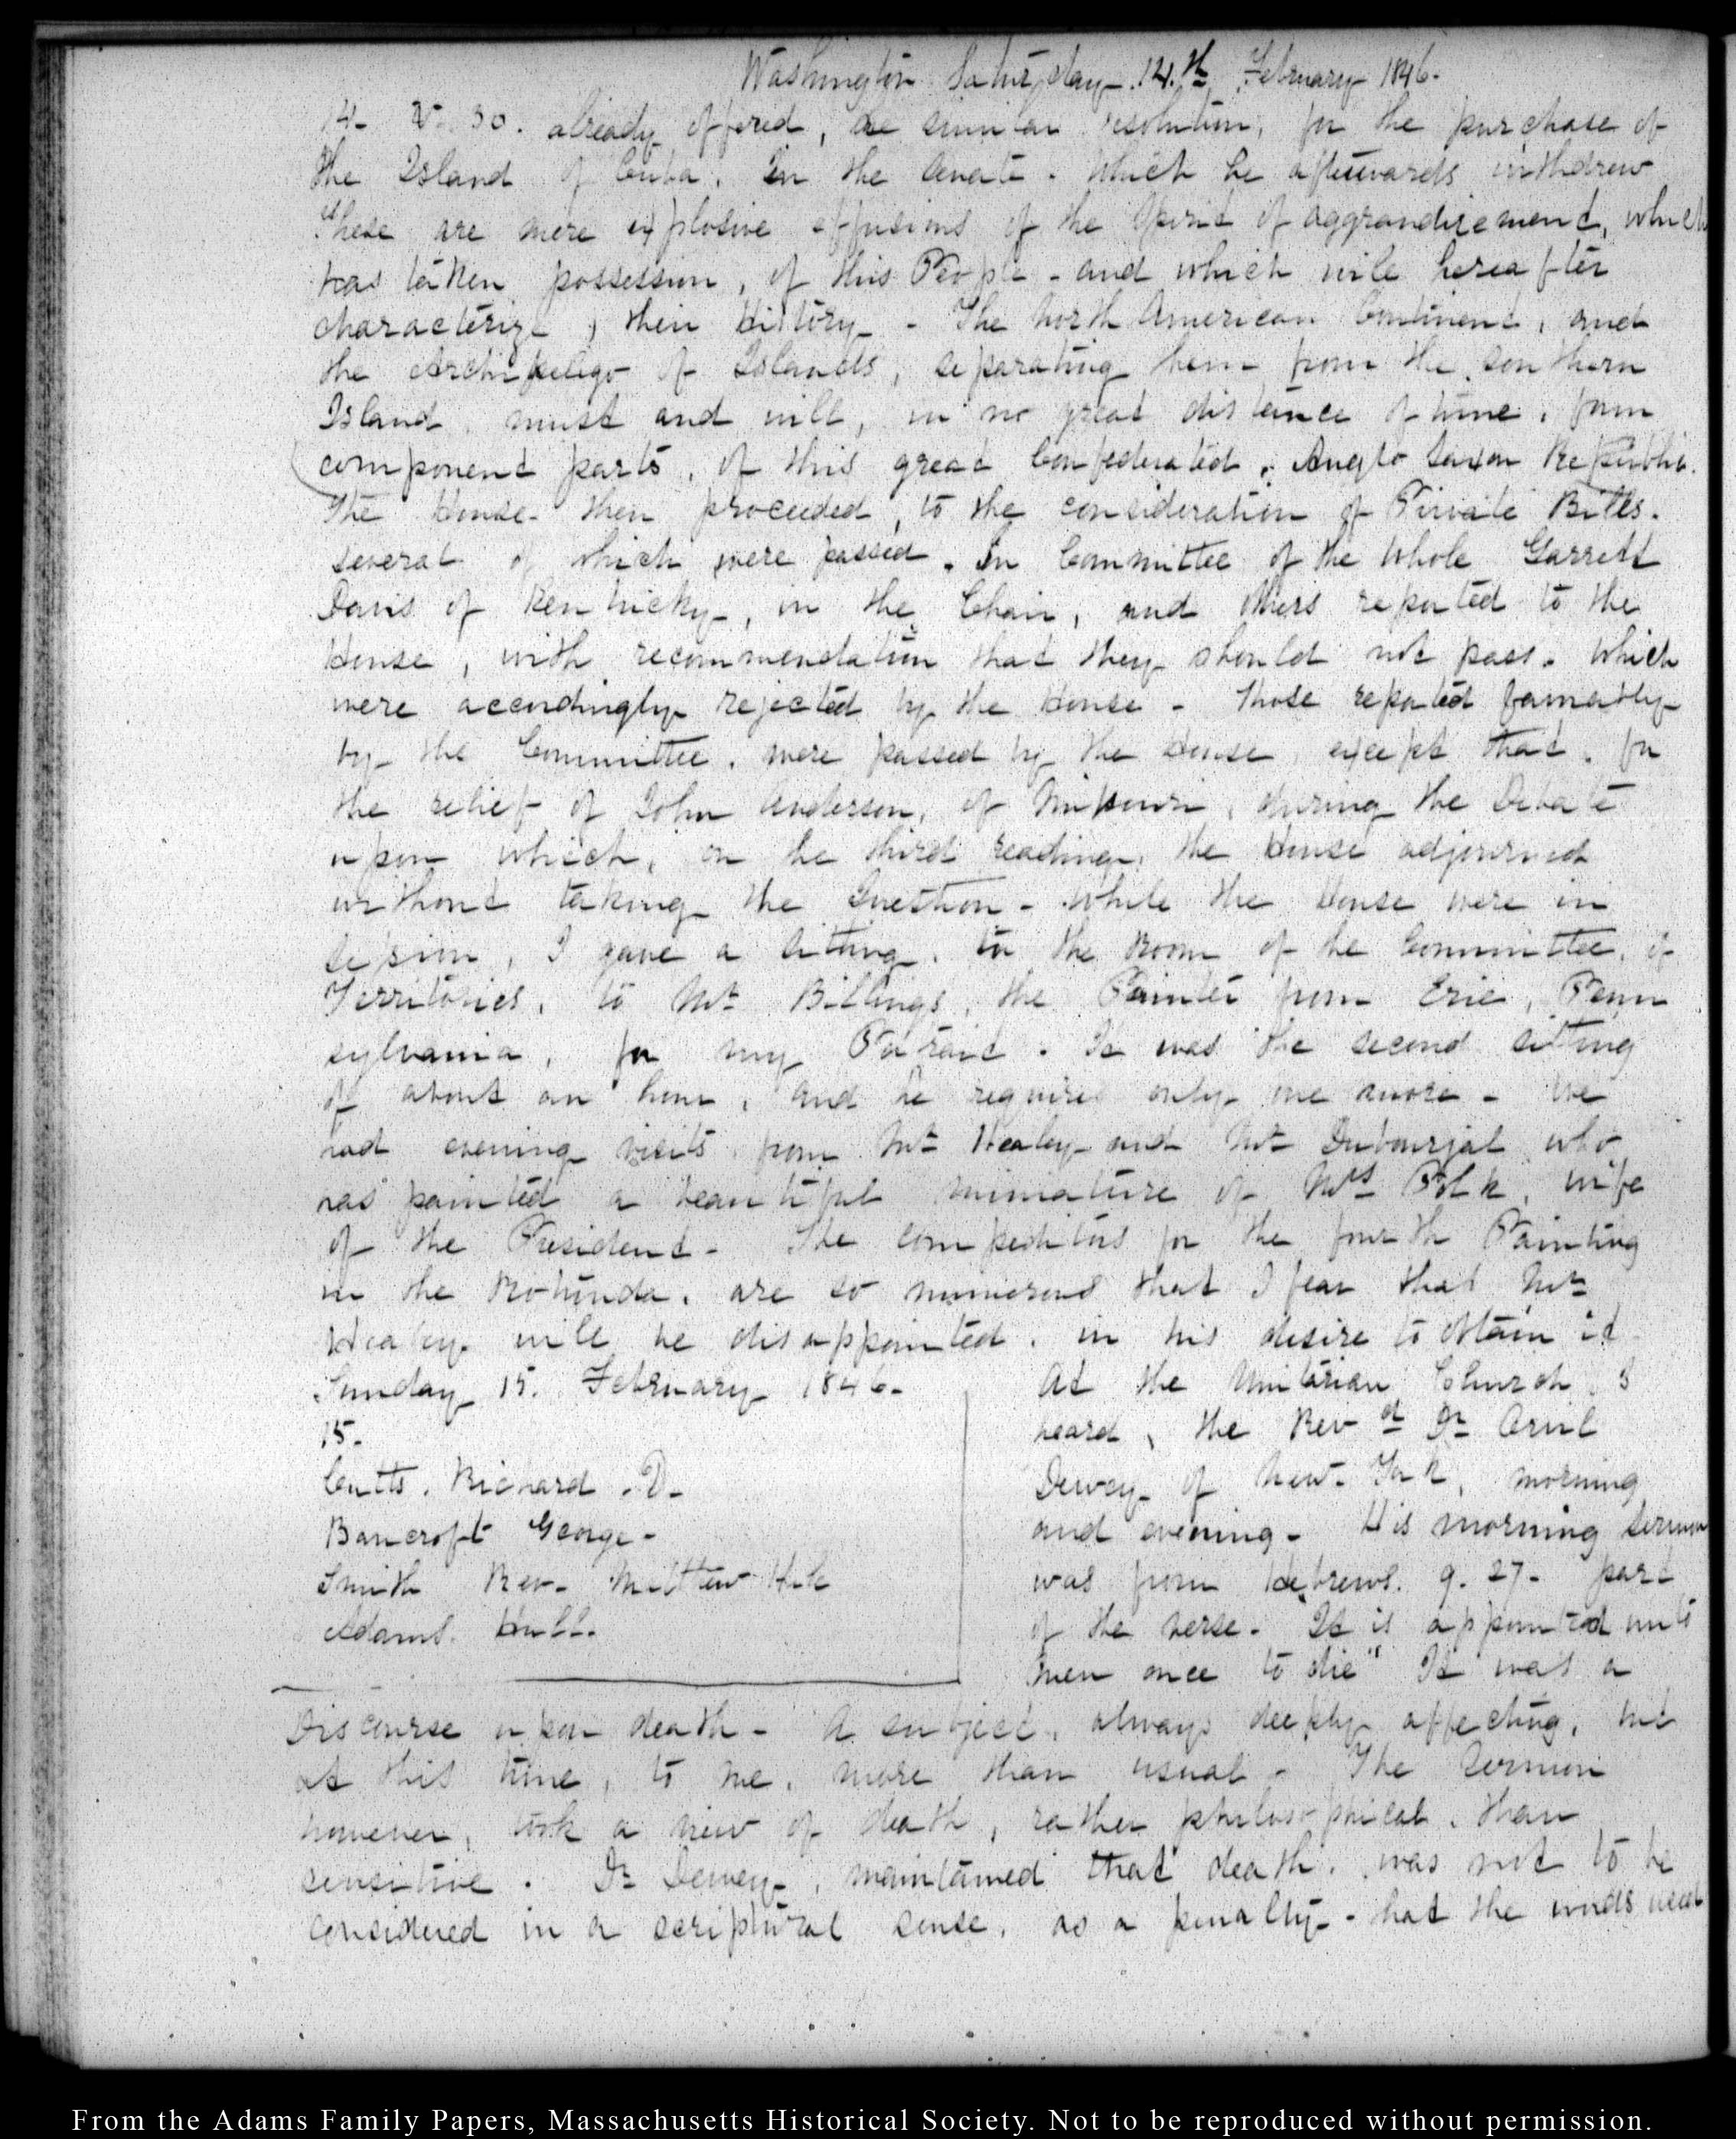 Washington Saturday 14.th February 1846.
14. V. 30. already offered, a similar resolution, for the purchase of
the Island of Cuba, in the Senate. which he afterwards withdrew
These are mere explosive effusions of the Spirit of aggrandizement, which
has taken possession, of this People - and which will hereafter
characterize, their History - The North American Continent, and
the Archipelago of Islands, separating them from the southern
Island, must and will, in no great distance of time, form
component parts, of this great Confederated, Anglo Saxon Republic.
The House then proceeded, to the consideration of Private Bills.
several of which were passed. In Committee of the Whole Garrett
Davis of Kentucky, in the Chair, and others reported to the
House, with recommendation that they should not pass. which
were accordingly rejected by the House - those reported favourably
by the Committee, were passed by the House, except that, for
the relief of John Anderson, of Missouri, during the Debate
upon which, on the third reading, the House adjourned
without taking the Question - while the House were in
session, I gave a sitting, in the Room of the Committee, of
Territories, to Mr Billings, the Painter from Erie, Penn
sylvania, for my Portrait. It was the second sitting
of about an hour, and he requires only one more - We
had evening visits from Mr Healey and Mr Dubourjal who
has painted a beautiful miniature of Mrs Polk, wife
of the President - The competitors for the fourth Painting
in the Rotunda, are so numerous that I fear that Mr
Healey will be disappointed, in his desire to obtain it
Sunday 15. February 1846.
15.
Cutts. Richard. D.
Bancroft George -
Smith Rev. Matthew Hale
Adams. Hull.
At the Unitarian Church, I
heard, the Revd Dr Orvil
Dewey of New-York, morning
and evening - His morning Sermon
was from Hebrews. 9. 27 - part
of the verse - It is appointed unto
men once to die" It was a
Discourse upon death - A subject, always deeply affecting, but
at this time, to me, more than usual - The Sermon
however, took a view of death, rather philosophical, than
sensitive. Dr Dewey, maintained that death, was not to be
considered in a scriptural sense, as a penalty - that the words used
From the Adams Family Papers, Massachusetts Historical Society. Not to be reproduced without permission.